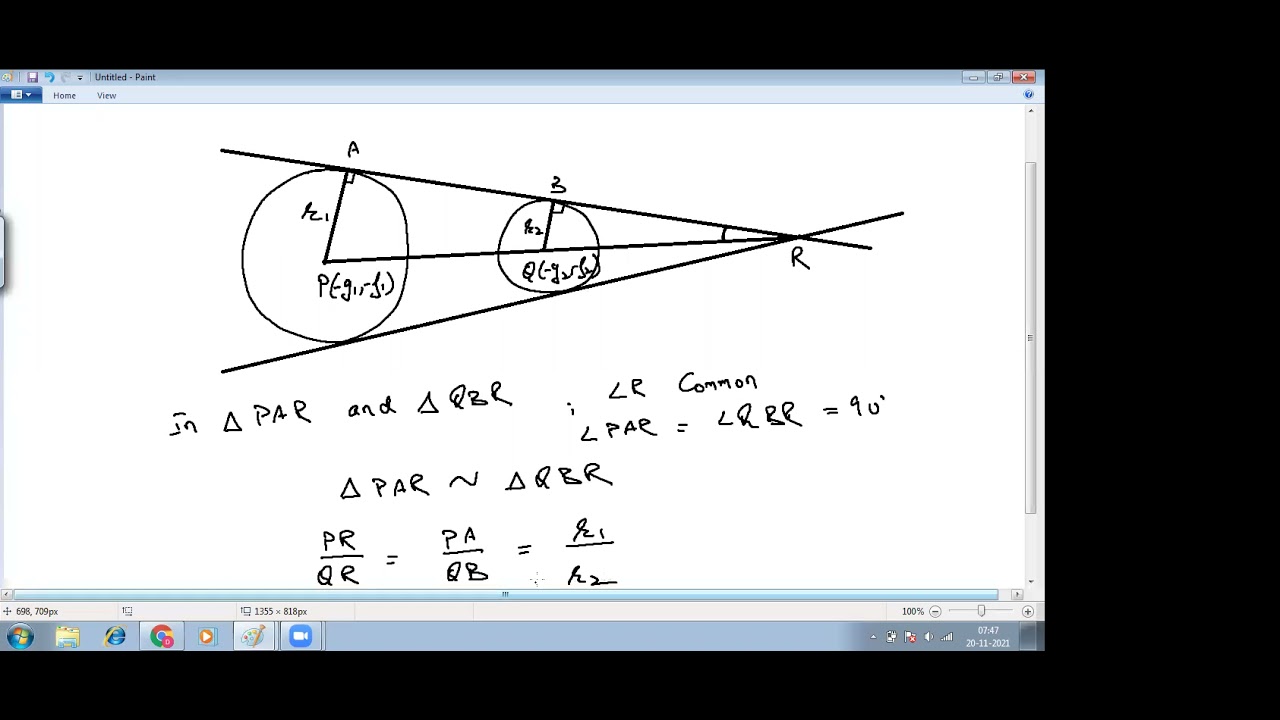 Untitled - Paint
Home View
A
B
r₁
r₂
R
P(-g₁,-f₁)
Q(-g₂,-f₂)
In Δ PAR and Δ QBR ; ∠R Common
∠PAR = ∠QBR = 90°
Δ PAR ~ Δ QBR
PR/QR = PA/QB = r₁/r₂
698, 709px 1355 × 818px 100%
07:47
20-11-2021